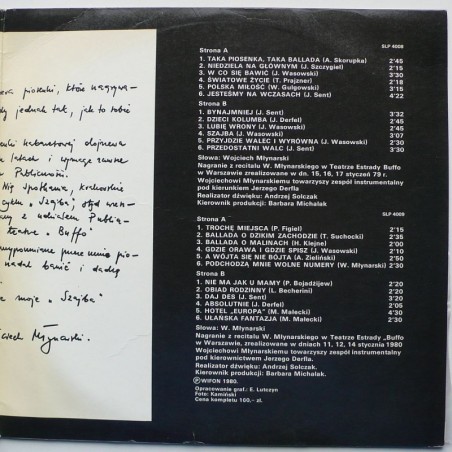 era piosenki, które nagrywa-
dy jednak tak, jak to robić
nki kabaretowej olojnera
latach i wymaga zawsze
Publiczności.
Nip spotkania, krakowskie
cyklu "Szajba", stąd wen-
ny z udziałem Publicz-
teatrze "Buffo"
wypomniane pure mnie pio-
nadal bawić i dadzą
e moje "Szajba"
ciech Młynarski.
SLP 4008
Strona A
1. TAKA PIOSENKA, TAKA BALLADA (A. Skorupka) 2'45
2. NIEDZIELA NA GŁÓWNYM (J. Szczygieł) 2'15
3. W CO SIĘ BAWIĆ (J. Wasowski) 3'30
4. ŚWIATOWE ŻYCIE (T. Prajzner) 2'18
5. POLSKA MIŁOŚĆ (W. Gulgowski) 3'15
6. JESTEŚMY NA WCZASACH (J. Sent) 4'22
Strona B
1. BYNAJMNIEJ (J. Sent) 3'32
2. DZIECI KOLUMBA (J. Derfel) 2'45
3. LUBIĘ WRONY (J. Wasowski) 2'45
4. SZAJBA (J. Wasowski) 3'05
5. PRZYJDZIE WALEC I WYRÓWNA (J. Wasowski) 3'07
6. PRZEDOSTATNI WALC (J. Sent) 2'30
Słowa: Wojciech Młynarski
Nagranie z recitalu W. Młynarskiego w Teatrze Estrady Buffo
w Warszawie zrealizowane w dn. 15, 16, 17 stycznia 79 r.
Wojciechowi Młynarskiemu towarzyszy zespół instrumentalny
pod kierunkiem Jerzego Derfla
Realizator dźwięku: Andrzej Solczak
Kierownik produkcji: Barbara Michalak
SLP 4009
Strona A
1. TROCHĘ MIEJSCA (P. Figiel) 2'15
2. BALLADA O DZIKIM ZACHODZIE (T. Suchocki) 2'35
3. BALLADA O MALINACH (H. Klejne) 2'00
4. GDZIE ORAWA I GDZIE SPISZ (J. Wasowski) 2'50
5. A WÓJTA SIĘ NIE BÓJTA (A. Zieliński) 2'10
6. PODCHODZĄ MNIE WOLNE NUMERY (W. Młynarski) 2'30
Strona B
1. NIE MA JAK U MAMY (P. Bojadzijew) 2'20
2. OBIAD RODZINNY (L. Becherini) 2'20
3. DAJ DES (J. Sent) 2'20
4. ABSOLUTNIE (J. Derfel) 2'05
5. HOTEL „EUROPA" (M. Małecki) 2'30
6. UŁAŃSKA FANTAZJA (M. Małecki) 2'30
Słowa: W. Młynarski
Nagranie z recitalu W. Młynarskiego w Teatrze Estrady „Buffo
w Warszawie, zrealizowane w dniach 11, 12, 14 stycznia 1980
Wojciechowi Młynarskiemu towarzyszy zespół instrumentalny
pod kierownictwem Jerzego Derfla.
Realizator dźwięku: Andrzej Solczak.
Kierownik produkcji: Barbara Michalak.
Ⓟ WIFON 1980.
Opracowanie graf.: E. Lutczyn
Foto: Kamiński
Cena kompletu 160,- zł.